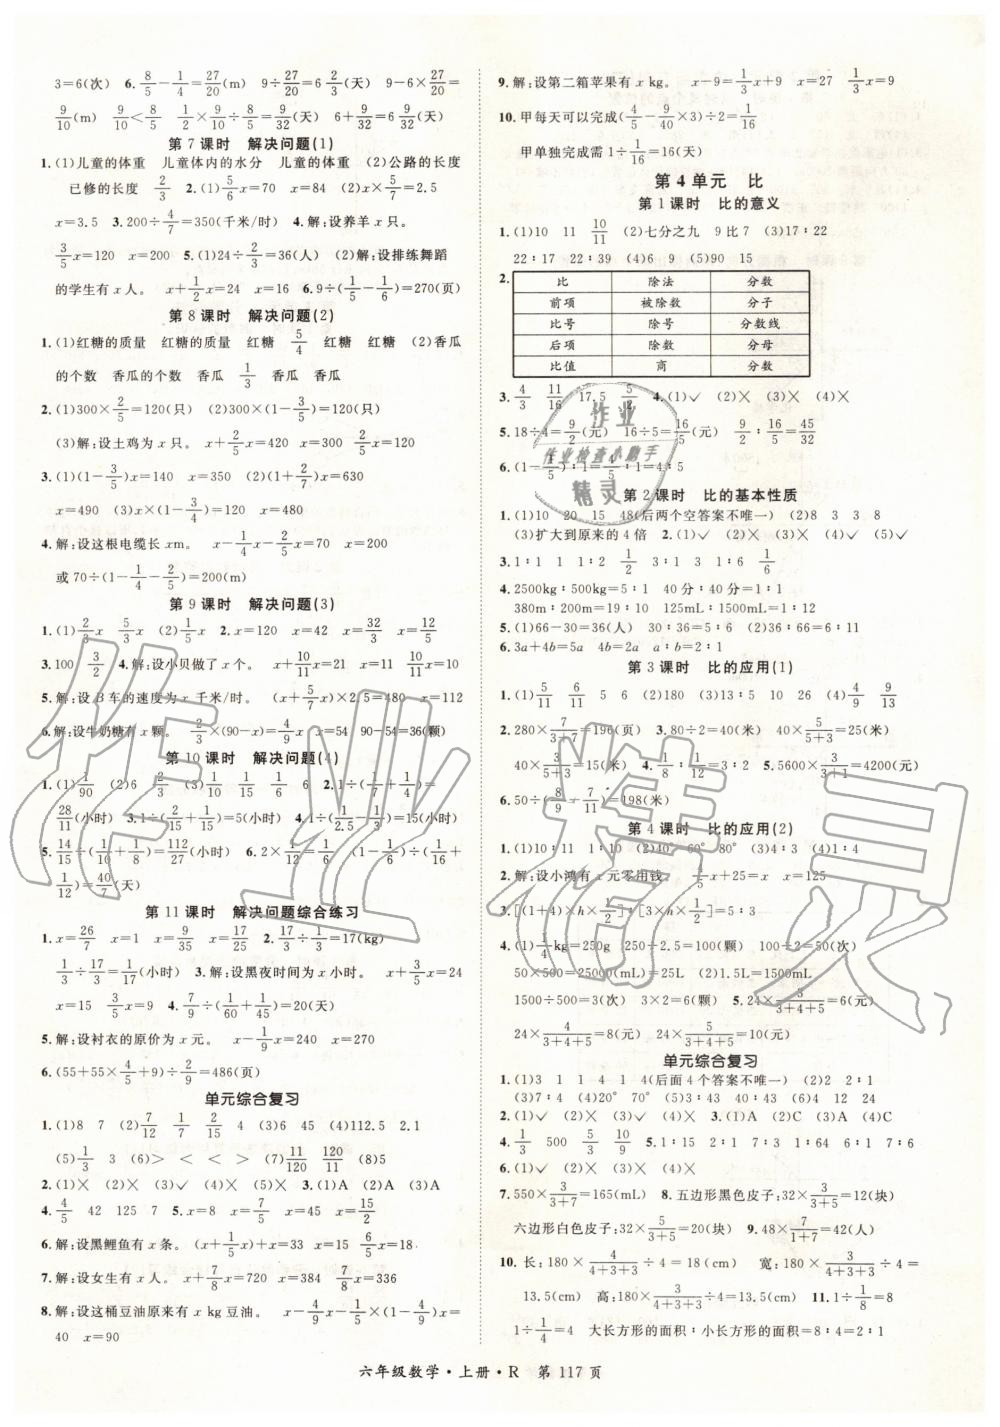 3=6(次) 6. 8/5−1/4=27/20(m) 9÷27/20=6 2/3(天) 9−6×27/20=
9/10(m) 9/10<8/5 9/10÷8/5=9/32(天) 6+9/32=6 9/32(天)
第 7 课时 解决问题(1)
1. (1)儿童的体重 儿童体内的水分 儿童的体重 (2)公路的长度
已修的长度 2/3 2. (1)5/6x=70 x=84 (2)5/7x=2.5
x=3.5 3. 200÷4/7=350(千米/时) 4. 解:设养羊 x 只。
3/5x=120 x=200 5. (1)24÷2/3=36(人) (2)解:设排练舞蹈
的学生有 x 人。 x+1/2x=24 x=16 6. 9÷(1/5−1/6)=270(页)
第 8 课时 解决问题(2)
1. (1)红糖的质量 红糖的质量 红糖 5/4 红糖 红糖 (2)香瓜
的个数 香瓜的个数 香瓜 1/3 香瓜 香瓜
2. (1)300×2/5=120(只) (2)300×(1−3/5)=120(只)
(3)解:设土鸡为 x 只。 x+2/5x=420 x=300
3. (1)(1−3/5)x=140 x=350 (2)(1+2/7)x=630
x=490 (3)x·(1−3/4)=120 x=480
4. 解:设这根电缆长 xm。 x−1/4x−2/5x=70 x=200
或 70÷(1−1/4−2/5)=200(m)
第 9 课时 解决问题(3)
1. (1)2/3x 5/3x (2)1/5x 2. x=120 x=42 x=32/3 x=12/5
3. 100 3/2 4. 解:设小贝做了 x 个。 x+10/11x=210 x=110
5. 解:设 B 车的速度为 x 千米/时。 (x+5/7x)×2.5=480 x=112
6. 解:设牛奶糖有 x 颗。 2/3×(90−x)=4/9x x=54 90−54=36(颗)
第 10 课时 解决问题(4)
1. (1)1/90 (2)6 1/15 (3)1/6 1/15 1/6 6 2. 1÷(1/4+1/7)=
28/11(小时) 3. 1÷(2/15+1/15)=5(小时) 4. 1÷(1/2.5−1/3)=15(小时)
5. 14/15÷(1/10+1/8)=112/27(小时) 6. 2×1/12=1/6 (1−1/6)÷(1/16+
1/12)=40/7(天)
第 11 课时 解决问题综合练习
1. x=26/7 x=1 x=9/35 x=17/25 2. 1/17÷1/3=17(kg)
1/3÷17/15=1/17(小时) 3. 解:设黑夜时间为 x 小时。 x+3/5x=24
x=15 3/5x=9 4. 7/9÷(1/60+1/45)=20(天)
5. 解:设衬衣的原价为 x 元。 x−1/9x=240 x=270
6. (55+55×4/9+9)÷2/9=486(页)
单元综合复习
1. (1)8 7 (2)7/12 1/7 2/15 4 (3)6 45 (4)112.5 2.1
(5)1/3 3 (6)> < < > (7)11/120 120/11 (8)5
2. (1)× (2)× (3)√ (4)× (5)× 3. (1)A (2)D (3)A
4. 4/5 42 125 7 5. x=8 x=7/5 x=45 x=15/2
6. 解:设黑鲤鱼有 x 条。 (x+1/5x)×1/2=33 x=30 3/5x=18
7. 解:设女生有 x 人。 x+7/8x=720 x=384 7/8x=336
8. 解:设这桶豆油原来有 x kg 豆油。 x−4/9x−1/5×(1−4/9)x=
40 x=90
9. 解:设第二箱苹果有 x kg。 x−9=1/3x+9 x=27 1/3x=9
10. 甲每天可以完成(4/5−9/40×3)÷2=1/16
甲单独完成需 1÷1/16=16(天)
第 4 单元 比
第 1 课时 比的意义
1. (1)10 11 10/11 (2)七分之九 9 比 7 (3)17∶22
22∶17 22∶39 (4)6 9 (5)90 15
2. 比 除法 分数
前项 被除数 分子
比号 除号 分数线
后项 除数 分母
比值 商 分数
3. 4/3 11/16 17.5 5/2 4. (1)√ (2)× (3)× (4)×
5. 18÷4=9/2(元) 16÷5=16/5(元) 9/2∶16/5=45/32
6. (1−1/5)∶1=4/5∶1=4∶5
第 2 课时 比的基本性质
1. (1)10 20 15 48(后两个空答案不唯一) (2)8 3 3 8
(3)扩大到原来的 4 倍 2. (1)√ (2)× (3)× (4)√
3. 1∶1 1∶1 1/2 3∶1 3 1∶6 1/6
4. 2500kg∶500kg=5∶1 40 分∶40 分=1∶1
380m∶200m=19∶10 125mL∶1500mL=1∶12
5. (1)66−30=36(人) 30∶36=5∶6 (2)36∶66=6∶11
6. 3a+4b=5a 4b=2a a∶b=2∶1
第 3 课时 比的应用(1)
1. (1)5/11 6/11 5 6 (2)180 (3)13∶5 10 26 (4)4/9 9/13
2. 280×7/3+7=196(页) 3. 80÷2=40(米) 40×5/5+3=25(米)
40×3/5+3=15(米) 4. 1/8∶1/12=3∶2 5. 5600×3/3+1=4200(元)
6. 50÷(8/9−7/11)=198(米)
第 4 课时 比的应用(2)
1. (1)10∶11 1∶10 (2)40° 60° 80° (3)4∶3 (4)1∶4
2. 解:设小鸿有 x 元零用钱。 1/5x+25=x x=125
3. [(1+4)×h×1/2]∶[3×h×1/2]=5∶3
4. (1)1/4kg=250g 250÷2.5=100(颗) 100÷2=50(次)
50×500=25000(mL)=25L (2)1.5L=1500mL
1500÷500=3(次) 3×2=6(颗) 5. 24×3/3+4+5=6(元)
24×4/3+4+5=8(元) 24×5/3+4+5=10(元)
单元综合复习
1. (1)3 1 1 4 1 4(后面 4 个答案不唯一) (2)2 2
(3)7∶4 (4)20° 70° (5)3∶43 40∶43 (6)4 12 24
2. (1)√ (2)√ (3)× (4)× 3. (1)A (2)C (3)A (4)C
4. 1/3 500 5/3 10/9 5. 1∶15 2∶1 7∶3 1∶64 6∶1 7∶6
6. (1)√ (2)×
7. 550×3/3+7=165(mL) 8. 五边形黑色皮子:32×3/5+3=12(块)
六边形白色皮子:32×5/5+3=20(块) 9. 48×7/1+7=42(人)
10. 长:180×4/4+3+3÷4=18(cm) 宽:180×3/4+3+3÷4=
13.5(cm) 高:180×3/4+3+3÷4=13.5(cm) 11. 1÷1/8=8
1÷1/4=4 大长方形的面积∶小长方形的面积=8∶4=2∶1
六年级数学·上册·R 第 117 页
作业
作业检查小助手
精灵
作业精灵